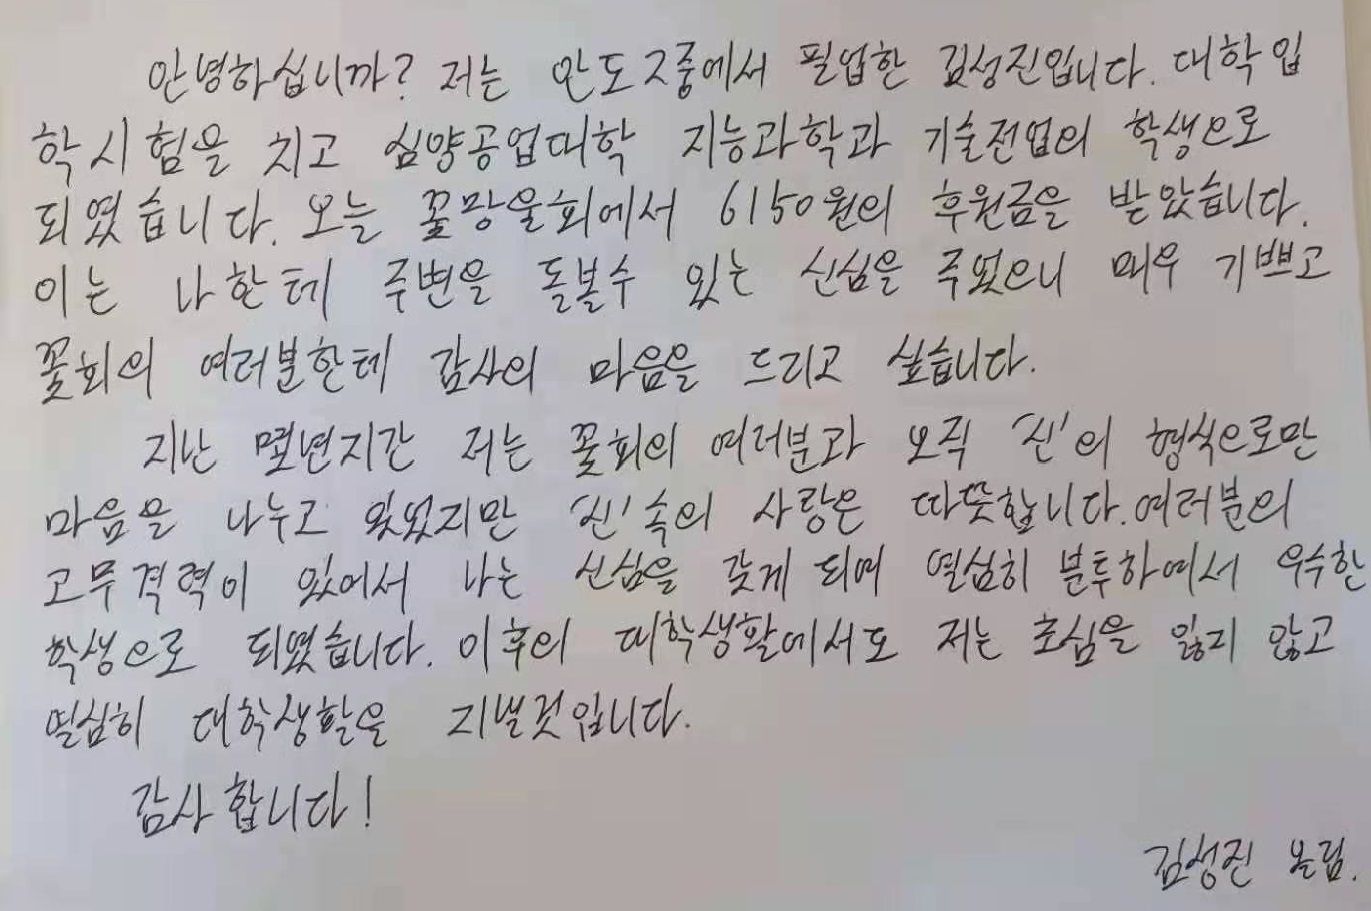 안녕하십니까? 저는 안도2중에서 필업한 김성진입니다. 대학입
학시험을 치고 심양공업대학 지능과학과 기술전업의 학생으로
되였습니다. 오늘 꽃망울회에서 6150원의 후원금을 받았습니다.
이는 나한테 주변을 돌볼수 있는 신심을 주었으니 매우 기쁘고
꽃회의 여러분한테 감사의 마음을 드리고 싶습니다.
지난 몇년지간 저는 꽃회의 여러분과 오직 '신'의 형식으로만
마음을 나누고 있었지만 '신'속의 사랑은 따뜻합니다. 여러분의
고무격력이 있어서 나는 신심을 갖게 되며 열심히 분투하여서 우수한
학생으로 되였습니다. 이후의 대학생활에서도 저는 초심을 잃지 않고
열심히 대학생활을 지낼것입니다.
감사합니다!
김성진 올림.